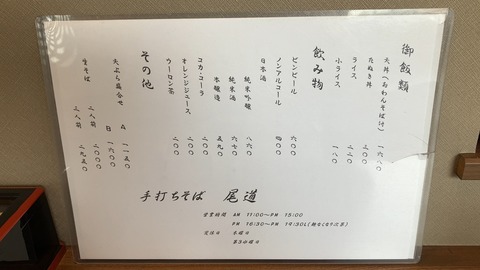 御飯類
天丼(おわんそば付) 一六八〇
たぬき丼
ライス 二二〇
小ライス 一八〇
飲み物
ビンビール 六〇〇
ノンアルコール 四〇〇
日本酒
純米吟醸 八六〇
純米酒 六七〇
本醸造 五九〇
コカ・コーラ 二〇〇
オレンジジュース 二〇〇
ウーロン茶 二〇〇
その他
天ぷら盛合せ A 一一五〇
B 一六〇〇
生そば 二人前 二〇〇〇
三人前 二九五〇
手打ちそば 尾道
営業時間 AM 11:00~PM 15:00
PM 16:30~PM 19:30L(麺なくなり次第)
定休日 木曜日
第3水曜日